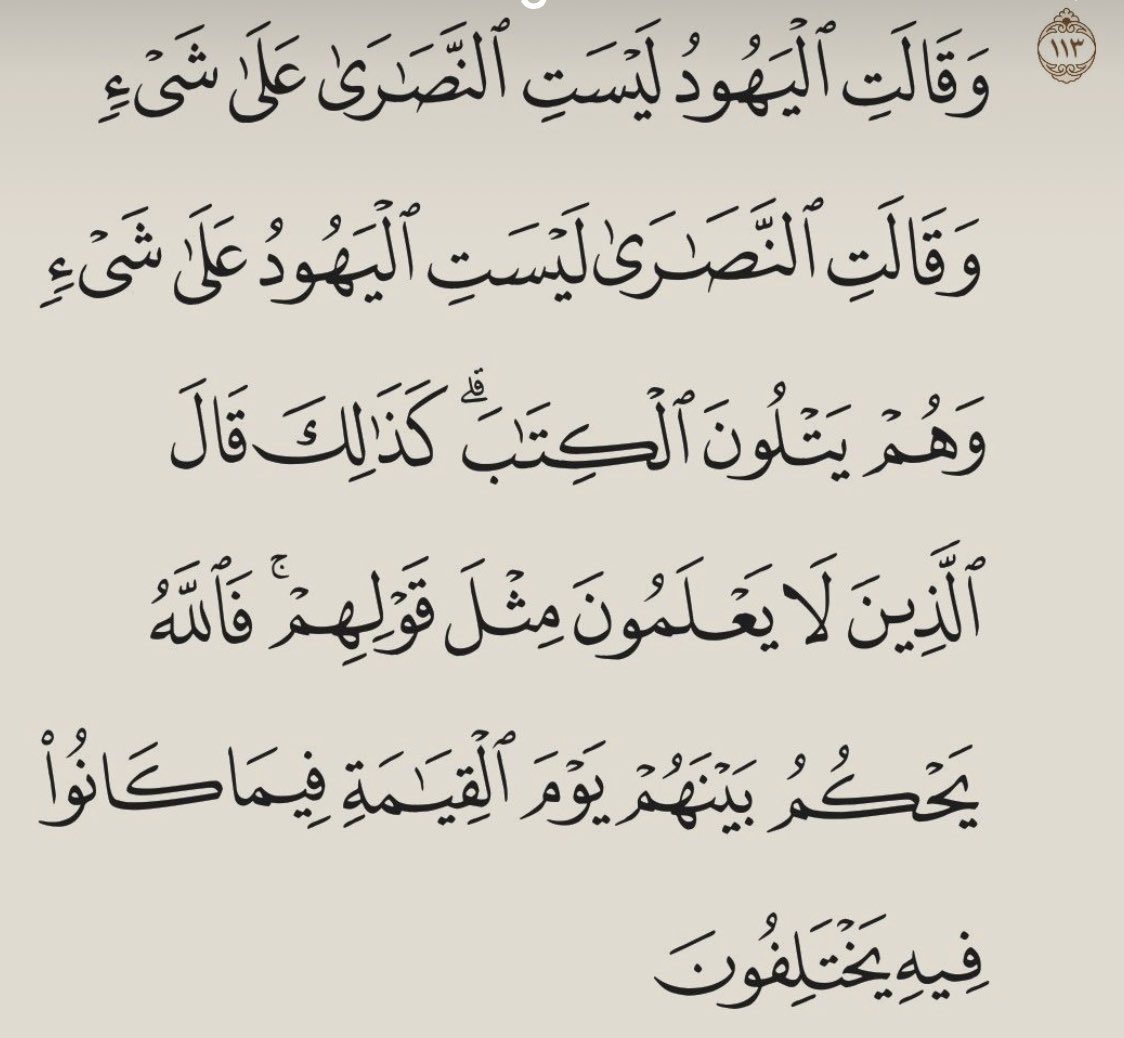 ١١٣
وَقَالَتِ ٱلْيَهُودُ لَيْسَتِ ٱلنَّصَـٰرَىٰ عَلَىٰ شَىْءٍ
وَقَالَتِ ٱلنَّصَـٰرَىٰ لَيْسَتِ ٱلْيَهُودُ عَلَىٰ شَىْءٍ
وَهُمْ يَتْلُونَ ٱلْكِتَـٰبَ ۗ كَذَٰلِكَ قَالَ
ٱلَّذِينَ لَا يَعْلَمُونَ مِثْلَ قَوْلِهِمْ ۚ فَٱللَّهُ
يَحْكُمُ بَيْنَهُمْ يَوْمَ ٱلْقِيَـٰمَةِ فِيمَا كَانُوا۟
فِيهِ يَخْتَلِفُونَ